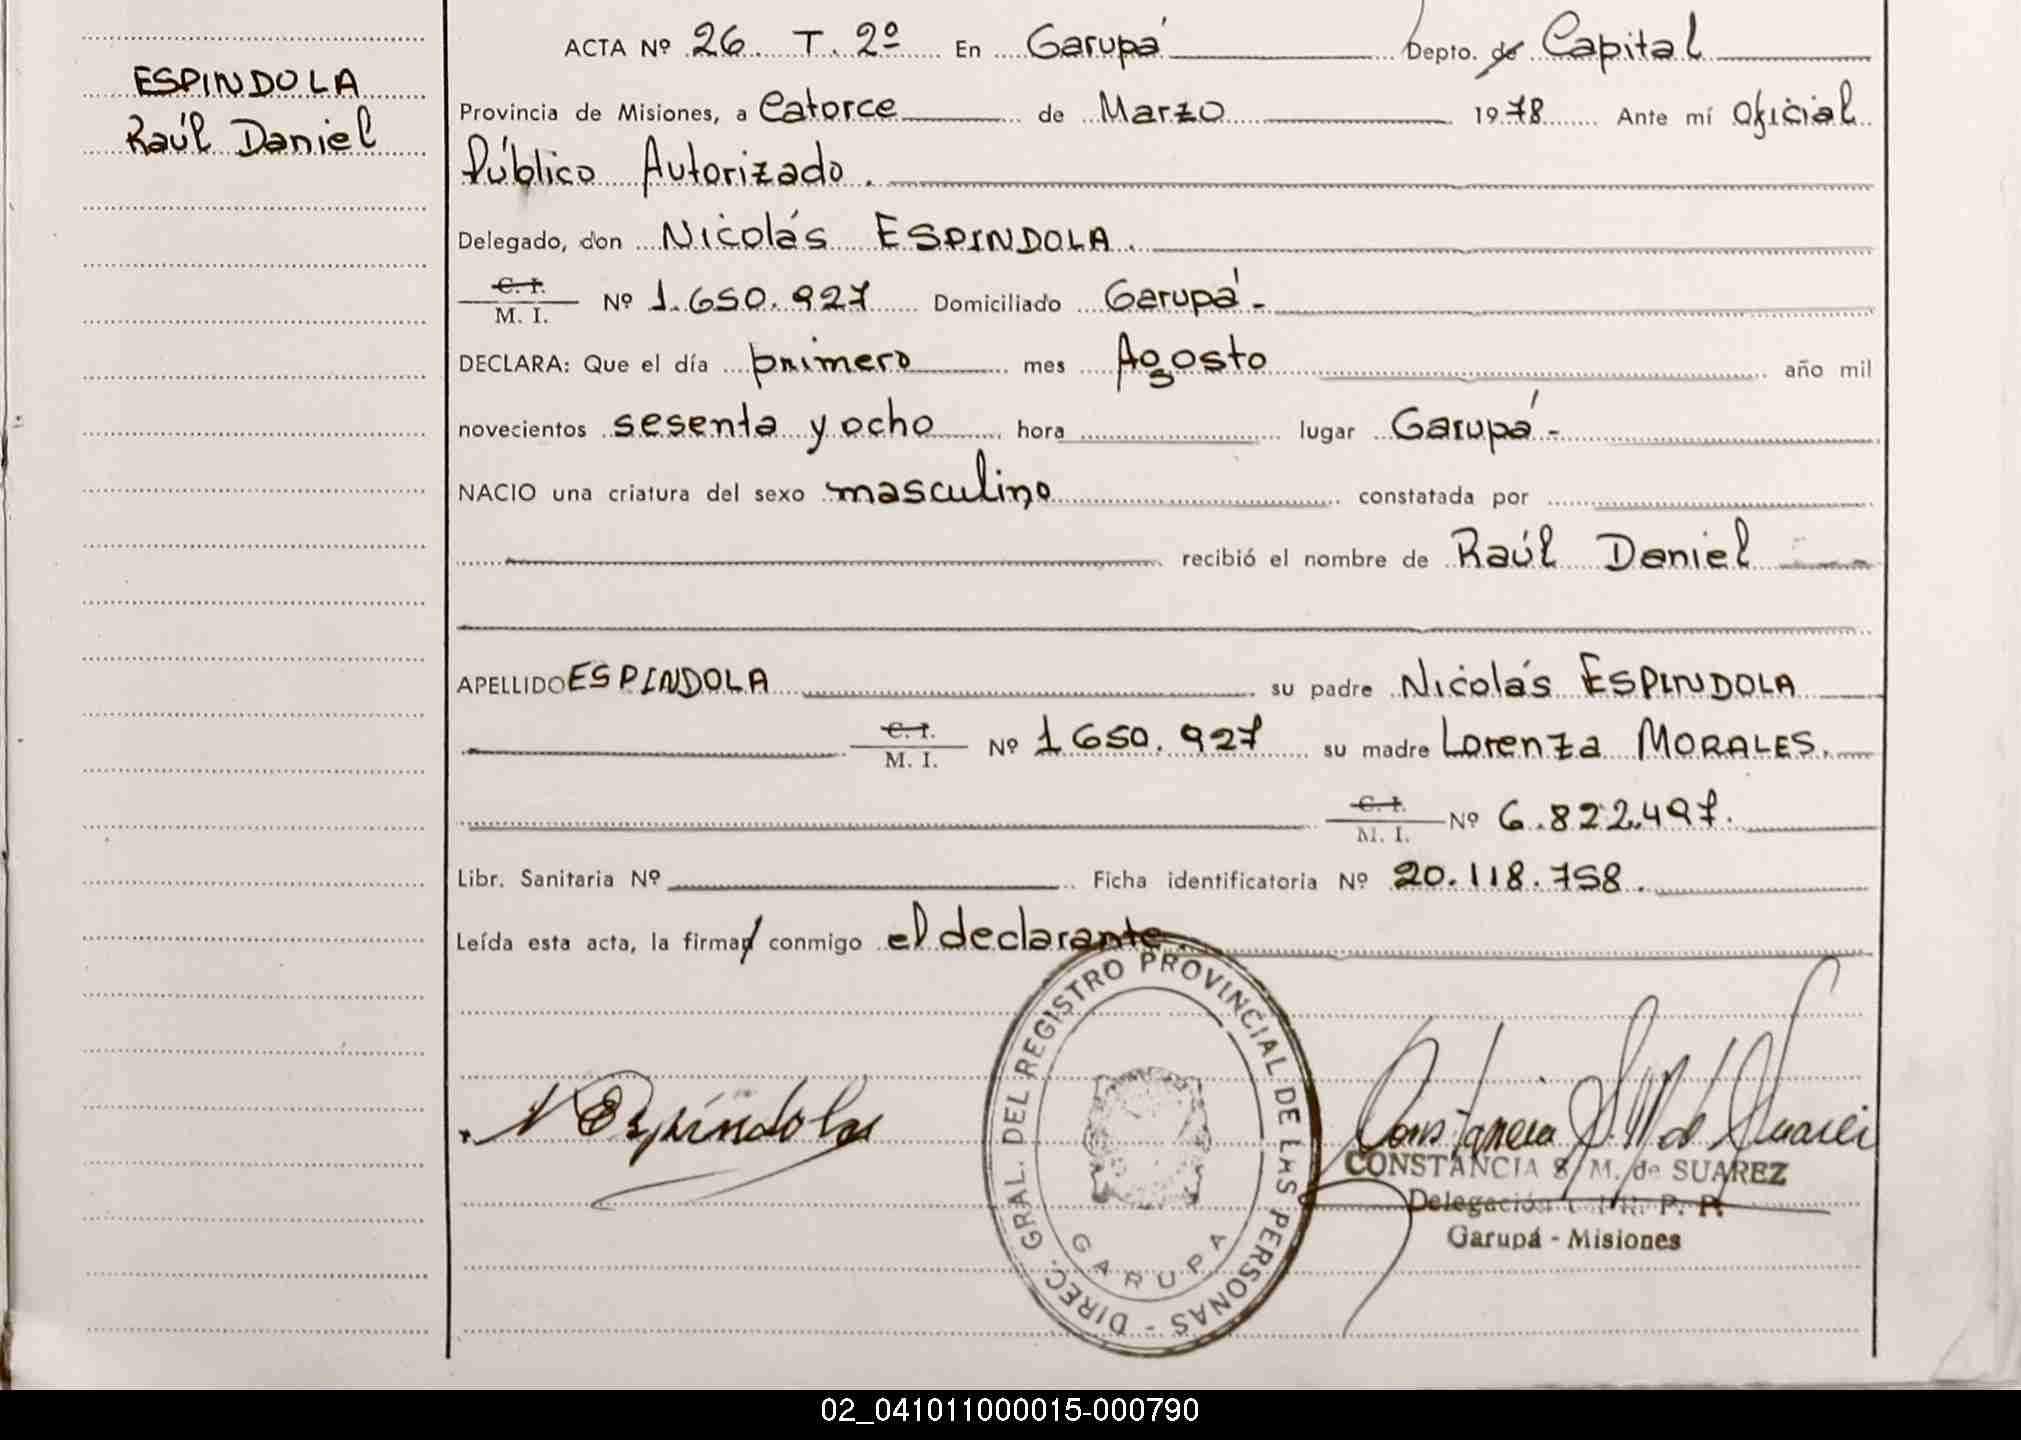 ESPINDOLA
Raúl Daniel
ACTA Nº 26. T. 2º En Garupá Depto. de Capital
Provincia de Misiones, a Catorce de Marzo 1978 Ante mí Oficial
Público Autorizado.
Delegado, don Nicolás ESPINDOLA.
C. I.
M. I. Nº 1.650.927 Domiciliado Garupá-
DECLARA: Que el día primero mes Agosto año mil
novecientos sesenta y ocho hora lugar Garupá-
NACIO una criatura del sexo masculino constatada por
recibió el nombre de Raúl Daniel
APELLIDO ESPINDOLA su padre Nicolás ESPINDOLA
C. I.
M. I. Nº 1.650.927 su madre Lorenza MORALES.
C. I.
M. I. Nº 6.822.497.
Libr. Sanitaria Nº Ficha identificatoria Nº 20.118.758.
Leída esta acta, la firman conmigo el declarante.
DIREC. GRAL. DEL REGISTRO PROVINCIAL DE LAS PERSONAS -
GARUPA
N Espíndola
Constancia S. M. de Suarez
CONSTANCIA S. M. de SUAREZ
Delegación R. P. P.
Garupá - Misiones
02_041011000015-000790